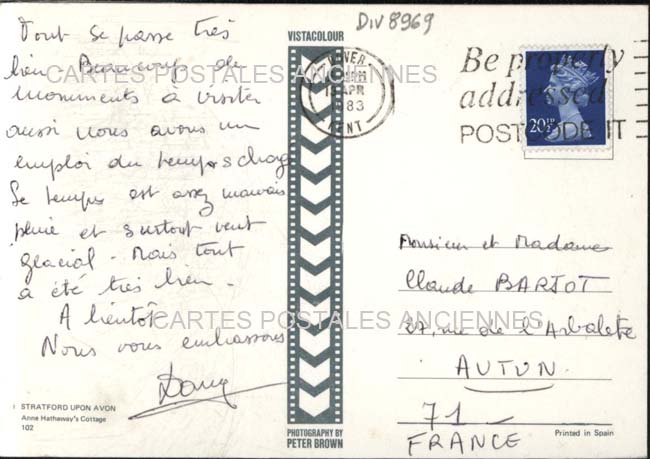 DIV 8969
Tout se passe très
bien. Beaucoup de
monuments à visiter
aussi nous avons un
emploi du temps chargé
Le temps est assez mauvais
pluie et surtout vent
glacial - Mais tout
a été très bien -
A bientôt
Nous vous embrassons
CARTES POSTALES ANCIENNES
CARTES POSTALES ANCIENNES
STRATFORD UPON AVON
Anne Hathaway's Cottage
102
VISTACOLOUR
PHOTOGRAPHY BY
PETER BROWN
DOVER
APR
83
KENT
Be properly
addressed
POSTCODE IT
20½P
Monsieur et Madame
Claude
37, rue de l'Arbalète
AUTUN
71
FRANCE
Printed in Spain